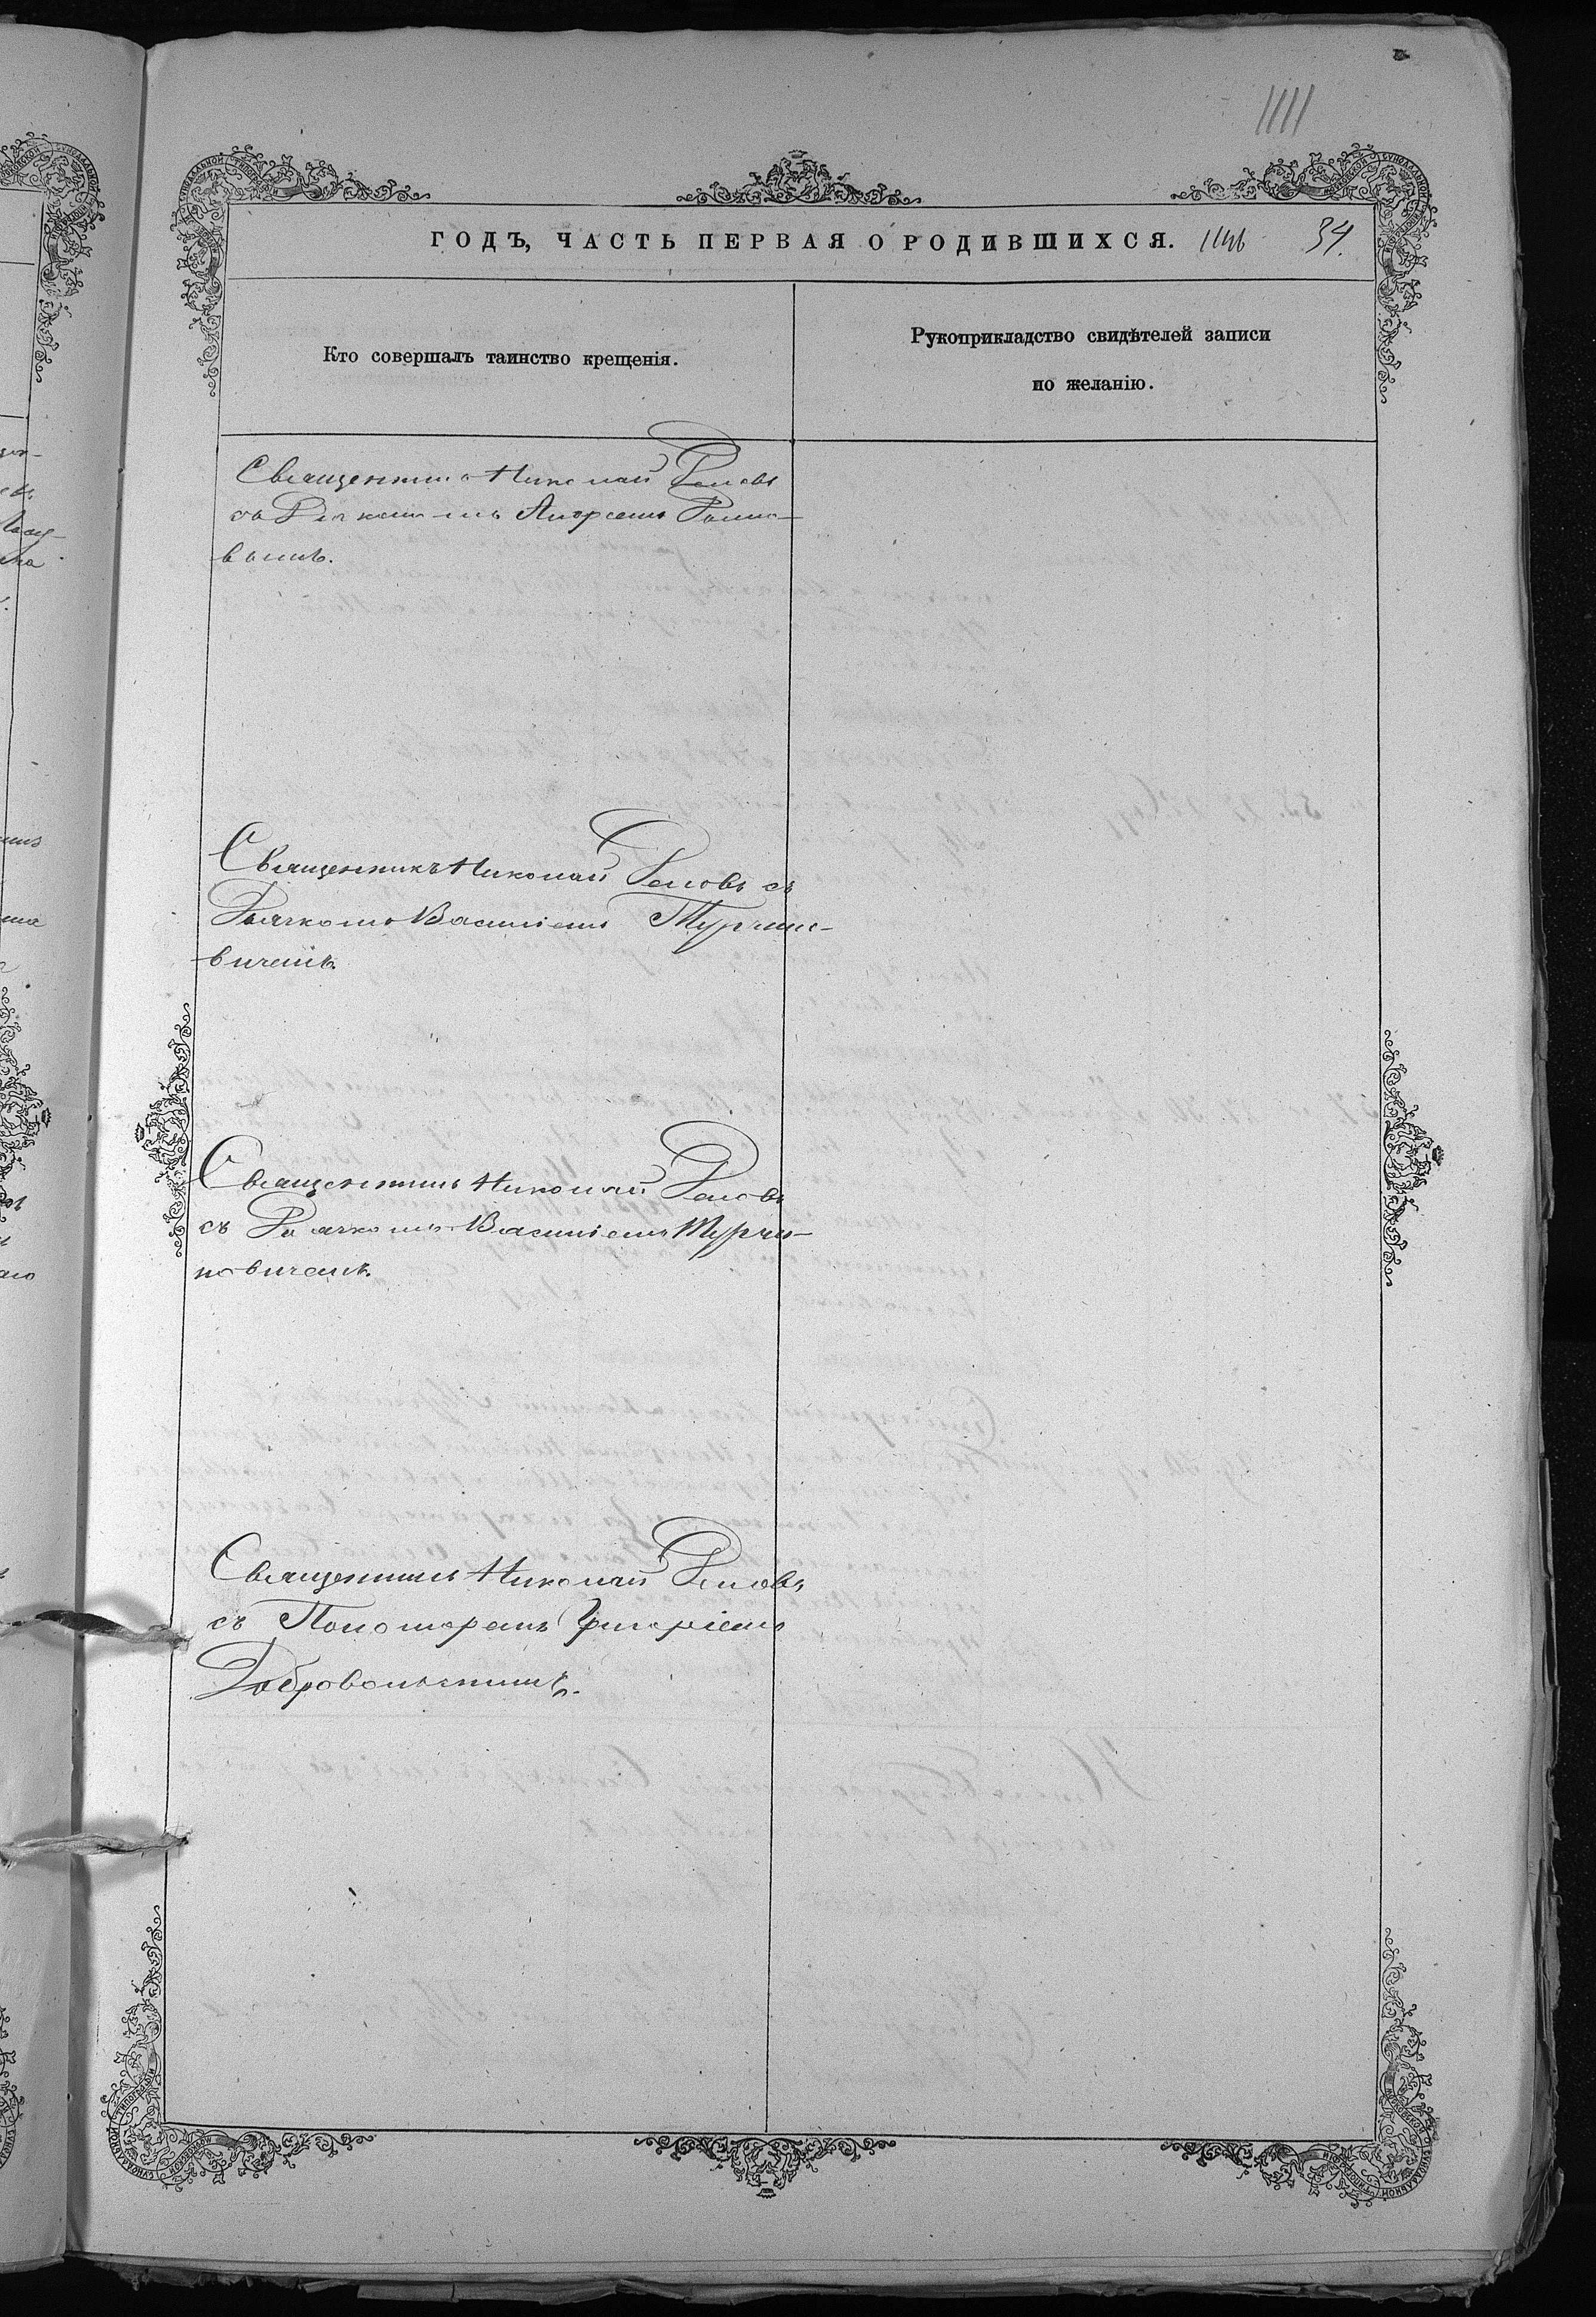 1111
ГОДЪ, ЧАСТЬ ПЕРВАЯ О РОДИВШИХСЯ. 1146 34.
Кто совершалъ таинство крещенія.
Рукоприкладство свидѣтелей записи
по желанію.
Священникъ Николай
съ Дьячкомъ Андреемъ
вымъ.
Священникъ Николай съ
Дьячкомъ Василіемъ Турчино-
вичемъ.
Священникъ Николай
съ Дьячкомъ Василіемъ Турчи-
новичемъ.
Священникъ Николай
съ Пономаремъ Григоріемъ
Добровольскимъ.